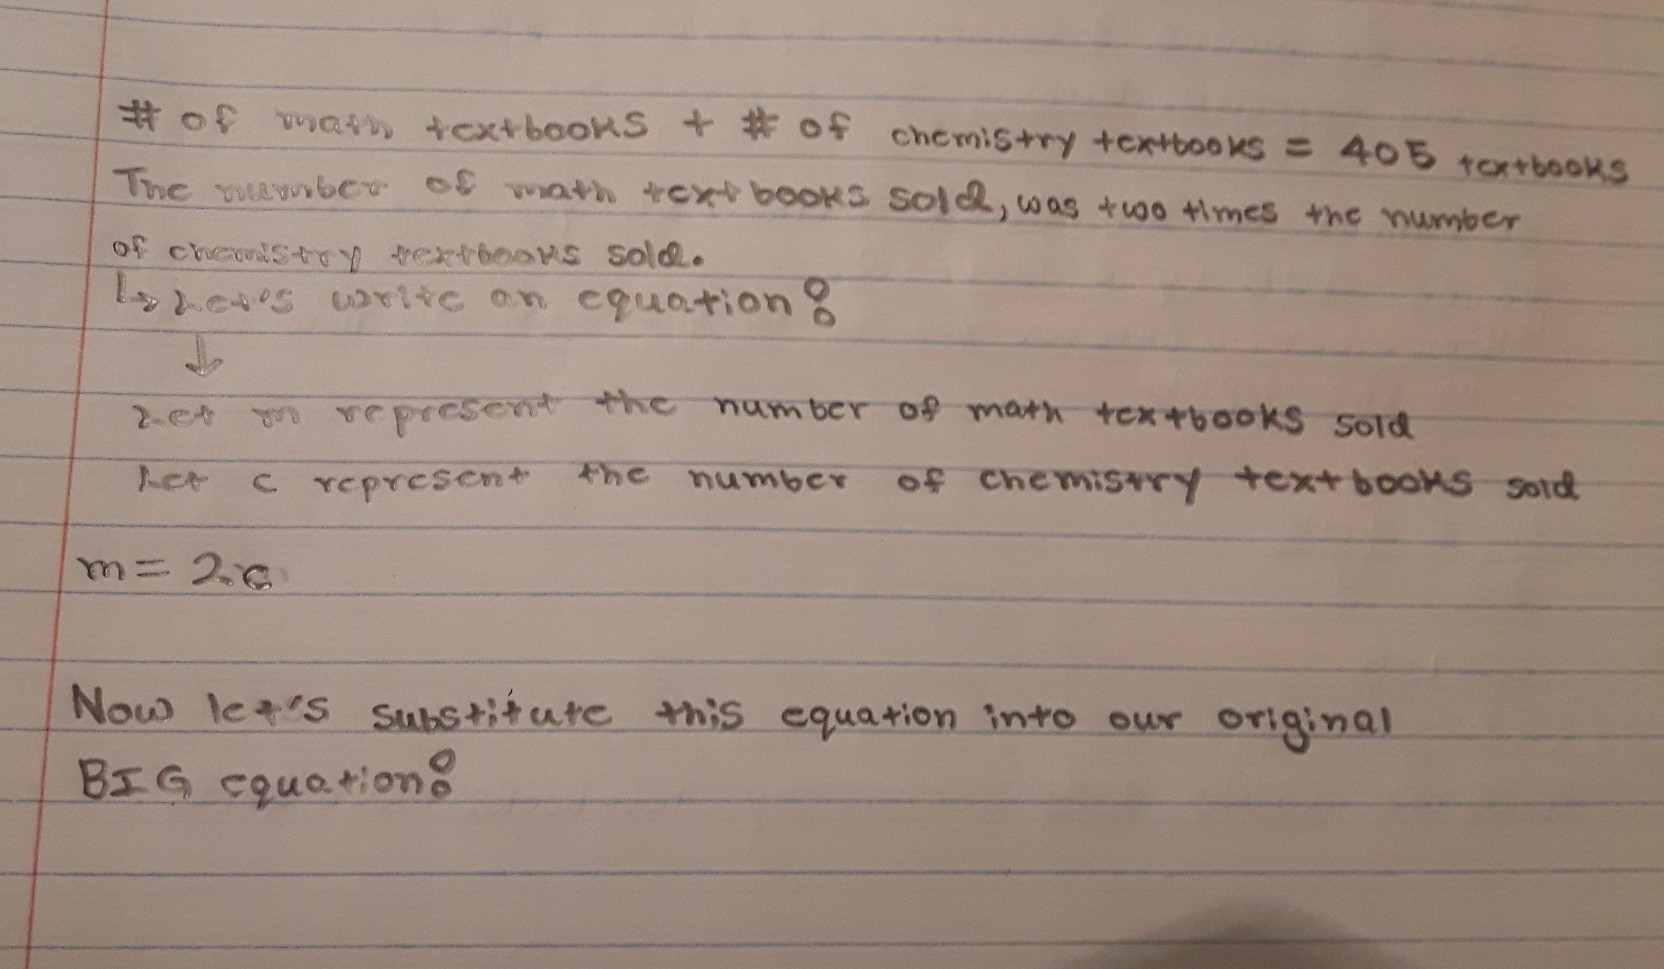 # of math textbooks + # of chemistry textbooks = 405 textbooks
The number of math textbooks sold, was two times the number
of chemistry textbooks sold.
↳ Let's write an equation:
↓
Let m represent the number of math textbooks sold
Let c represent the number of chemistry textbooks sold
m = 2.c
Now let's substitute this equation into our original
BIG equation: